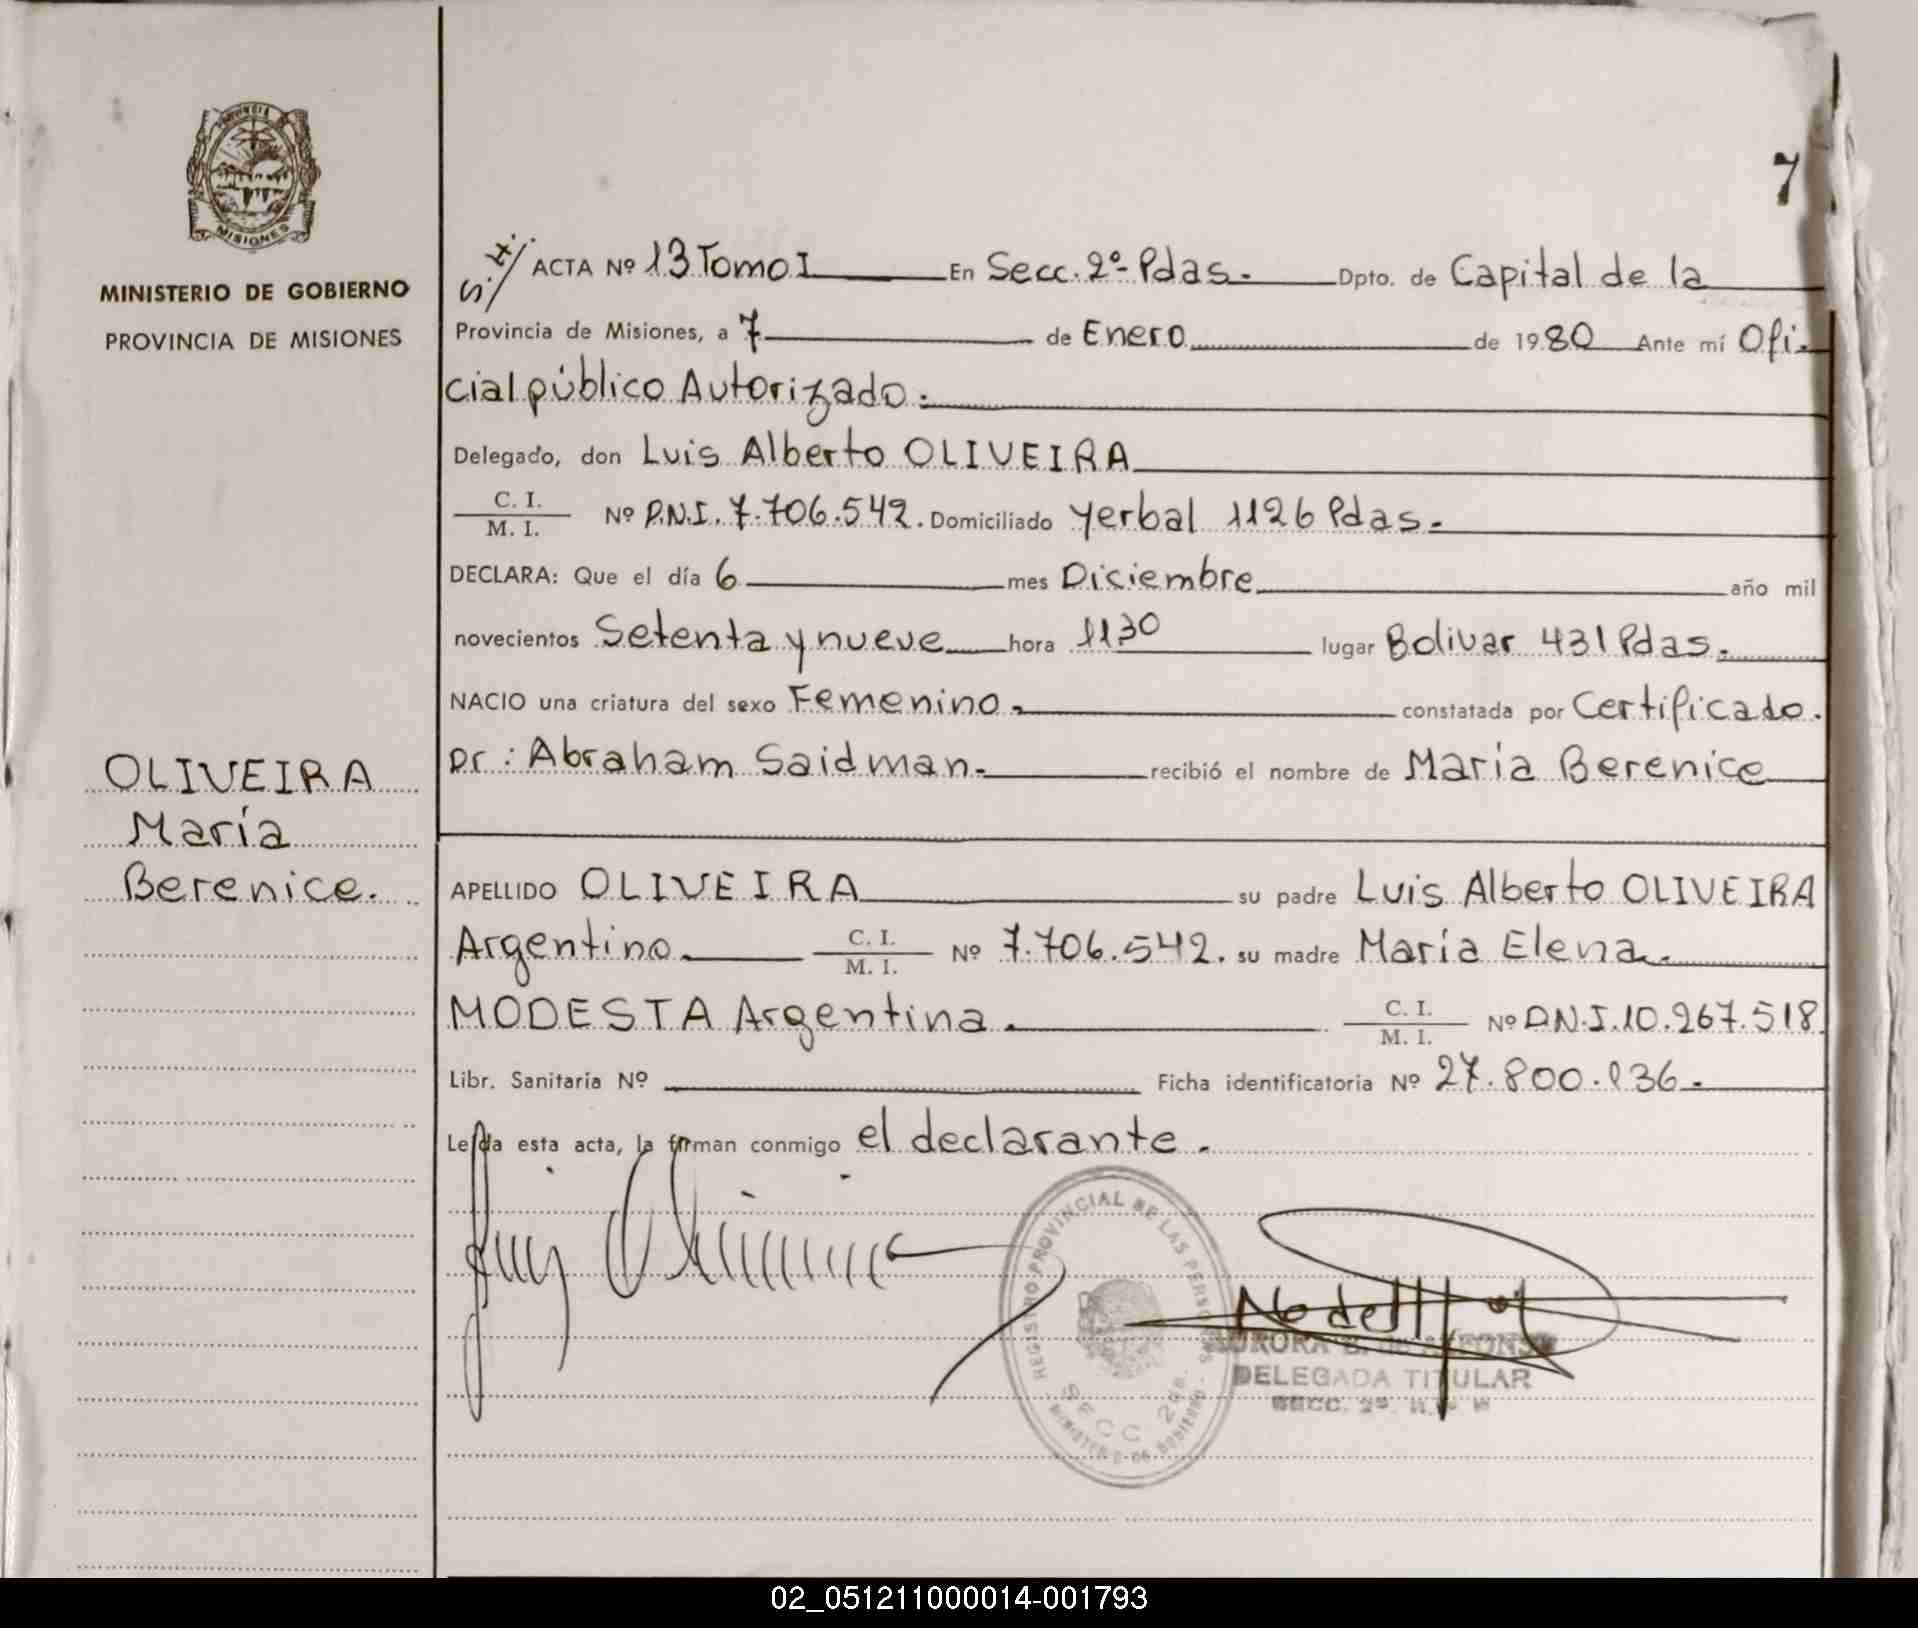 7
PROVINCIA DE
MISIONES
MINISTERIO DE GOBIERNO
PROVINCIA DE MISIONES
ACTA Nº 13 Tomo I En Secc. 2º Pdas. Dpto. de Capital de la
Provincia de Misiones, a 7 de Enero de 1980 Ante mí Ofi-
cial público Autorizado.
Delegado, don Luis Alberto OLIVEIRA
C. I.
M. I. Nº D.N.I. 7.706.542. Domiciliado Yerbal 1126 Pdas.
DECLARA: Que el día 6 mes Diciembre año mil
novecientos Setenta y nueve hora 1130 lugar Bolivar 431 Pdas.
NACIO una criatura del sexo Femenino. constatada por Certificado.
Dr: Abraham Saidman. recibió el nombre de María Berenice
OLIVEIRA
María
Berenice.
APELLIDO OLIVEIRA su padre Luis Alberto OLIVEIRA
Argentino C. I.
M. I. Nº 7.706.542. su madre María Elena
MODESTA Argentina. C. I.
M. I. Nº D.N.I. 10.267.518.
Libr. Sanitaria Nº Ficha identificatoria Nº 27.800.036.
Leída esta acta, la firman conmigo el declarante.
REGISTRO PROVINCIAL DE LAS PERSONAS
SECC 2da.
MINISTERIO DE GOBIERNO
AURORA DELEGADA TITULAR
SECC. 2º
02_051211000014-001793